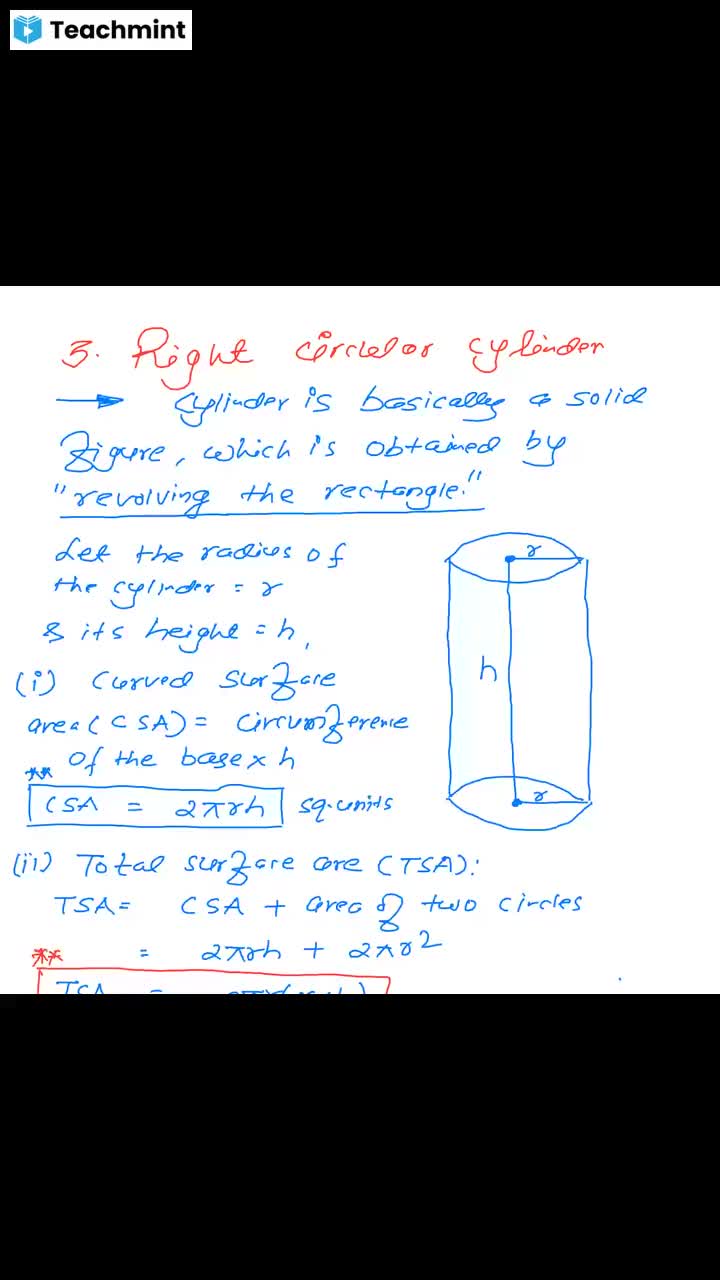 Teachmint
3. Right circular cylinder
→ Cylinder is basically a solid
figure, which is obtained by
"revolving the rectangle."
Let the radius of
the cylinder = r
& its height = h,
r
h
r
(i) Curved surface
area (CSA) = circumference
of the base × h
** CSA = 2πrh sq. units
(ii) Total surface are (TSA):
TSA = CSA + area of two circles
= 2πrh + 2πr²
** TSA =